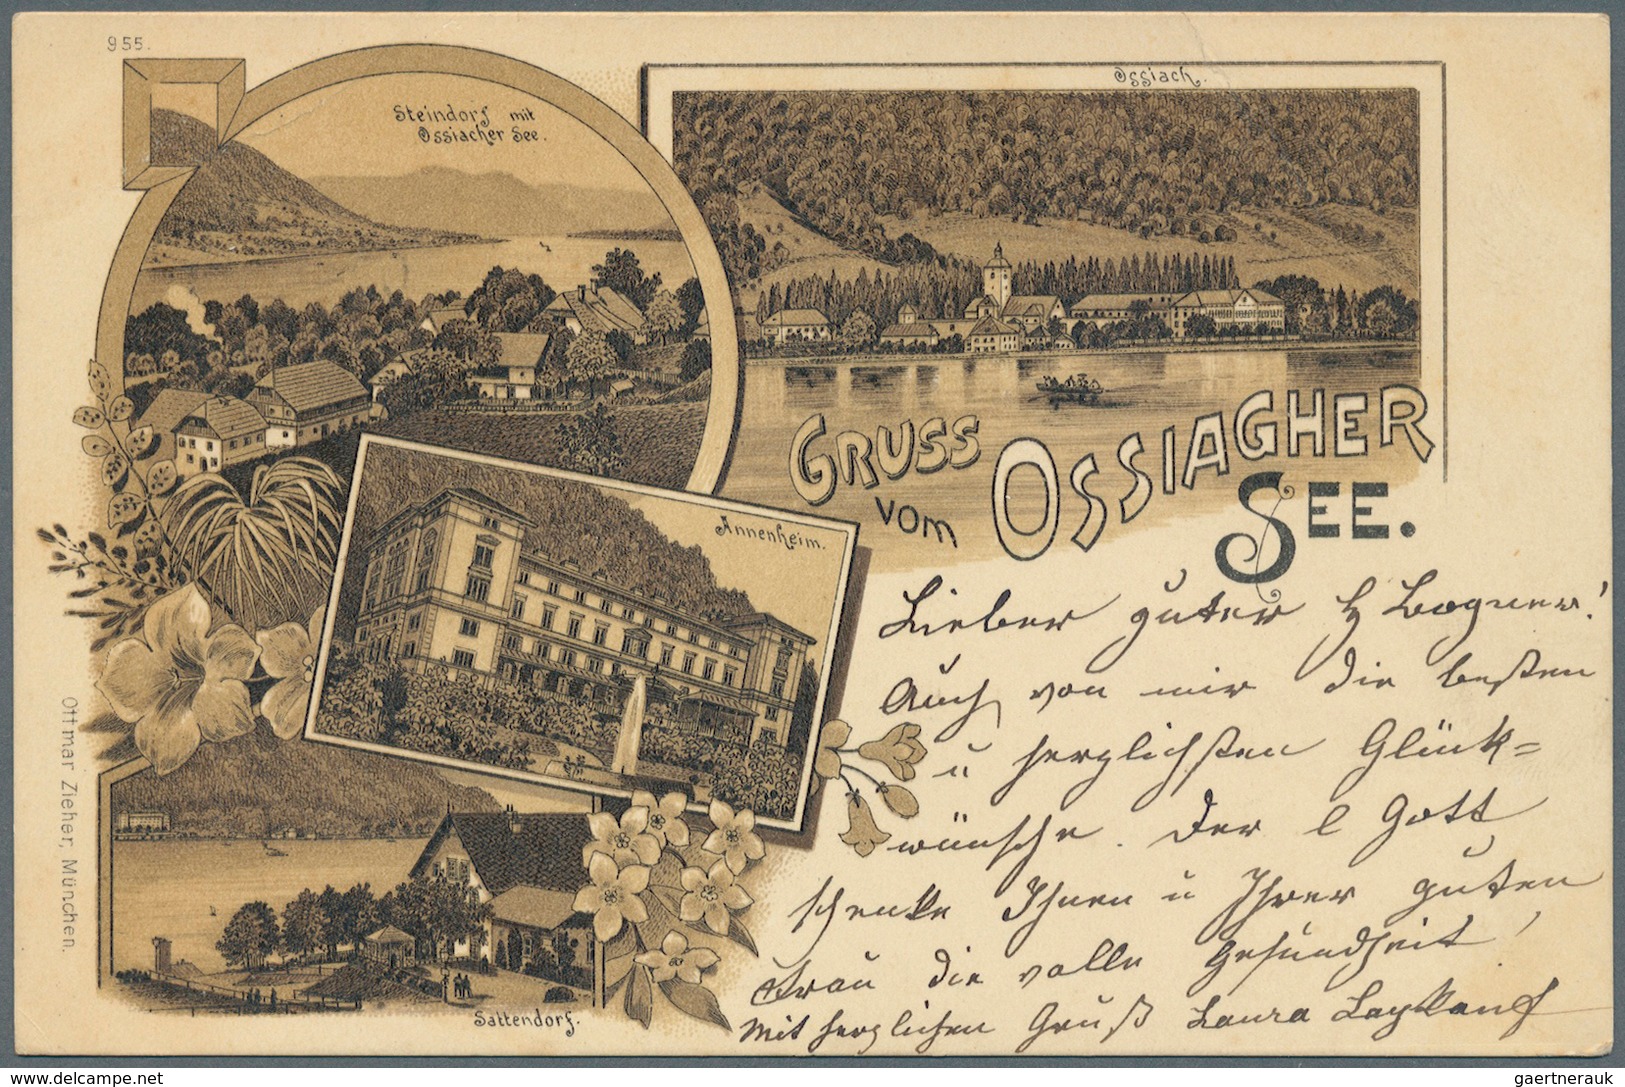 955.
Steindorf mit
Ossiacher See.
Ossiach.
GRUSS
VOM
OSSIAGHER
SEE.
Annenheim.
Sattendorf.
Ottmar Zieher, München.
Lieber guter H Bogner!
Auch von mir die besten
u herzlichsten Glück=
wünsche. Der l Gott
schenke Ihnen u Ihrer guten
Frau die volle Gesundheit!
Mit herzlichen Gruß Laura
delcampe.net
gaertnerauk